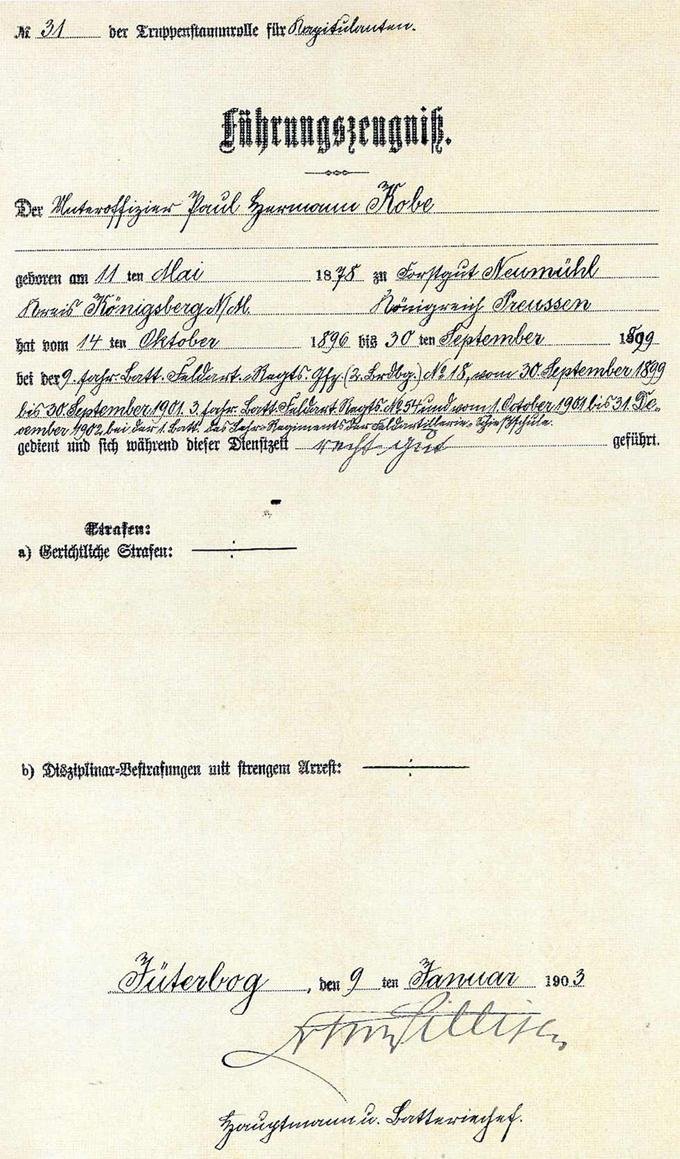 № 31 der Truppenstammrolle für Kapitulanten.
Führungszeugniß.
Der Unteroffizier Paul Hermann Kobe
geboren am 11 ten Mai 1878 zu Forstgut Neumühl
Kreis Königsberg N/M. Königreich Preussen
hat vom 14 ten Oktober 1896 bis 30 ten September 1899
bei der 9. fahr. Batt. Feldart.-Regts. Gfz. (2. Brdbg.) № 18, vom 30. September 1899
bis 30. September 1901. 3. fahr. Batt. Feldart. Regts. № 54 und vom 1. October 1901 bis 31. De-
cember 1902 bei der 1. Batt. des Lehr-Regiments der Feldartillerie-Schießschule.
gedient und sich während dieser Dienstzeit recht gut geführt.
Strafen:
a) Gerichtliche Strafen:
b) Disziplinar-Bestrafungen mit strengem Arrest:
Jüterbog, den 9 ten Januar 1903
Hauptmann u. Batteriechef.